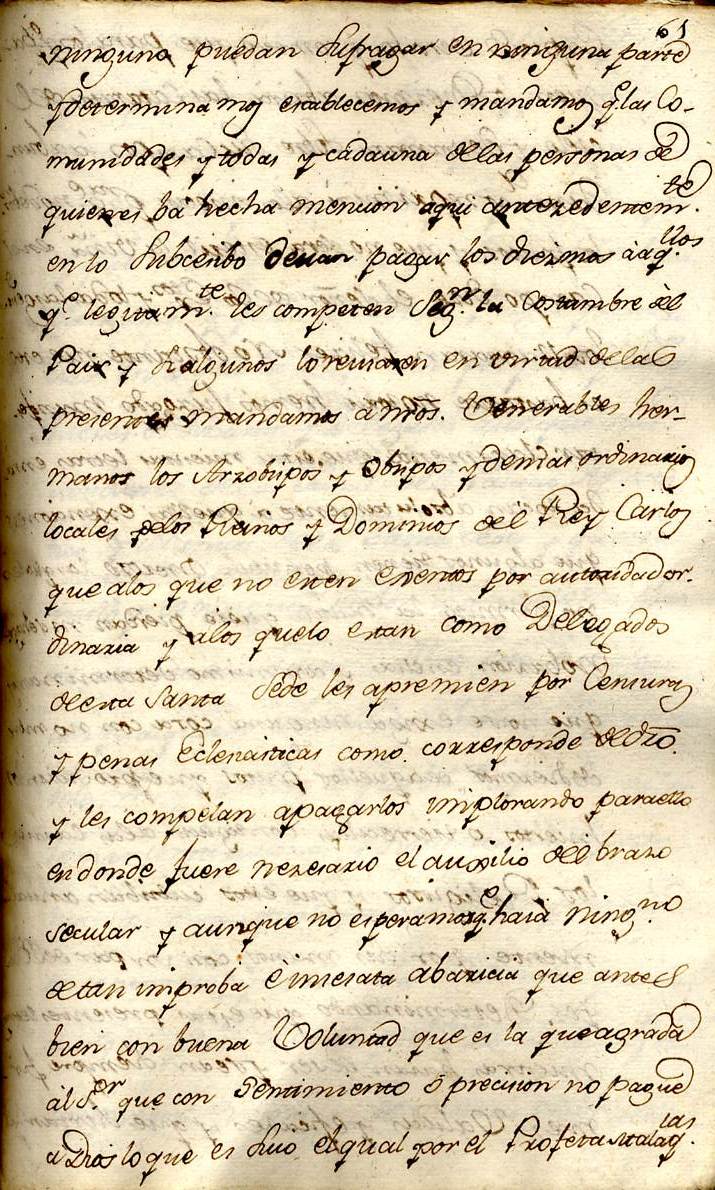 61
ninguno puedan sufragar en ninguna parte
y determinamos establecemos y mandamos q.e las Co-
munidades y todas y cada una de las personas de
quienes bá hecha mencion aqui antezedentem.te
en lo subcesibo devan pagar los diezmos à aq.llos
q.e legitam.te les competen seg.n la Costumbre del
Pais y si algunos lo reusaren en virtud de las
presentes mandamos a nros. Venerables her-
manos los Arzobispos y Obispos y demas ordinarios
locales de los Reinos y Dominios del Rey Carlos
que a los que no esten esentos por autoridad or-
dinaria y a los que lo estan como Delegados
de esta Santa Sede les apremien por Censuras
y penas Eclesiasticas como corresponde de dro.
y les compelan a pagarlos implorando para ello
en donde fuere nezesario el auxilio del brazo
secular y aunque no esperamos q.e haia ning.no
de tan improba è insesata abaricia que antes
bien con buena Voluntad que es la que agrada
àl S.or que con sentimiento ò precision no pague
a Dios lo que es suo el qual por el Profeta Malaq.ias